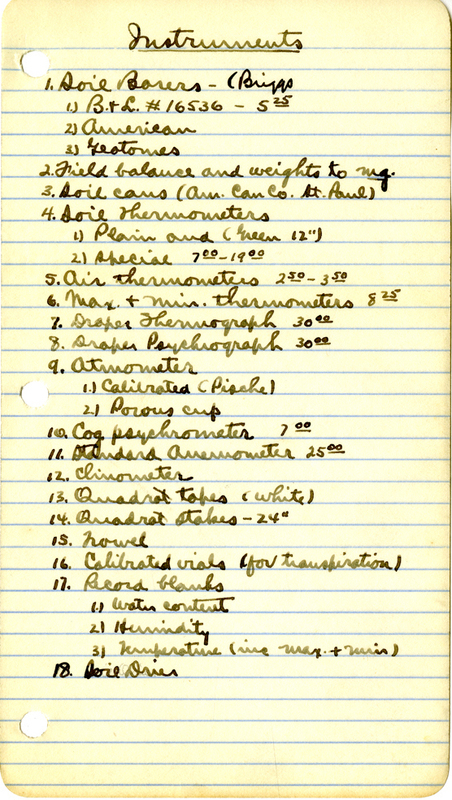 Instruments
1. Soil Borers - (Briggs
1) B.+L. # 16536 - 5 25
2) American
3) Geotomes
2. Field balance and weights to mg.
3. Soil cans (Am. Can Co. St. Paul)
4. Soil Thermometers
1) Plain and (Green 12")
2) Special 7 00 - 19 00
5. Air thermometers 2 50 - 3 50
6. Max. + min. thermometers 8 25
7. Draper Thermograph 30 00
8. Draper Psychrograph 30 00
9. Atmometer
1.) Calibrated (Pische)
2.) Porous cup
10. Cog psychrometer 7 00
11. Standard Anemometer 25 00
12. Clinometer
13. Quadrat tapes (white)
14. Quadrat stakes - 24"
15. Trowel
16. Calibrated vials (for transpiration)
17. Record blanks
1.) Water content
2) Humidity
3) Temperature (inc max. + min)
18. Soil Drier